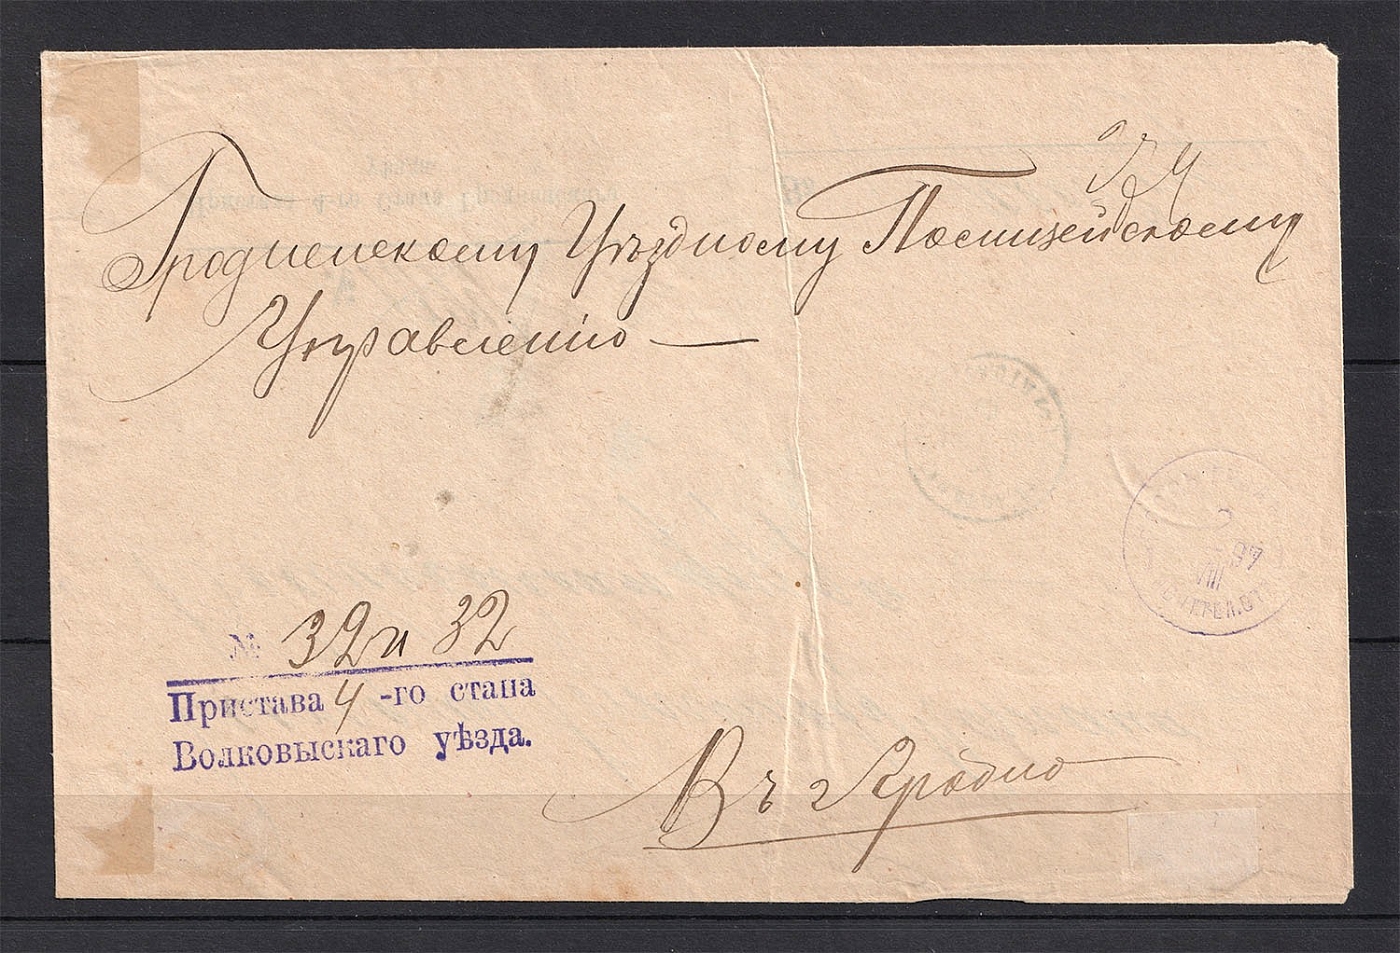 Гродненскому Уѣздному Полицейскому
Управленію —
№ 32 и 32
Пристава 4 -го стана
Волковыскаго уѣзда.
Въ г Гродно